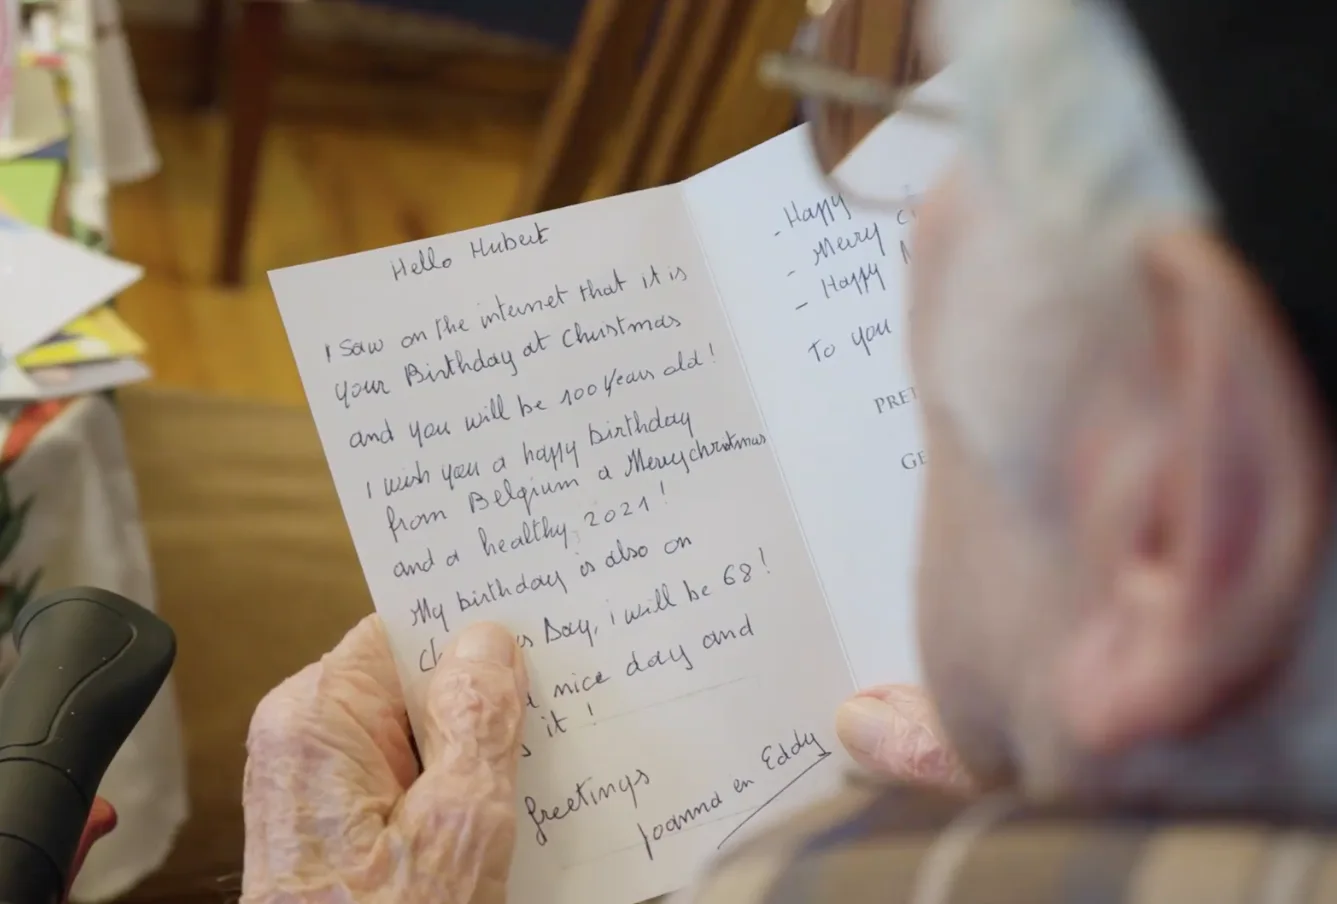 Hello Hubert
I saw on the internet that it is
your Birthday at Christmas
and you will be 100 Years old!
I wish you a happy birthday
from Belgium a Merry christmas
and a healthy 2021!
My birthday is also on
Day, i will be 68!
nice day and
it!
greetings
Joanna en Eddy
- Happy
- Merry
- Happy
To you